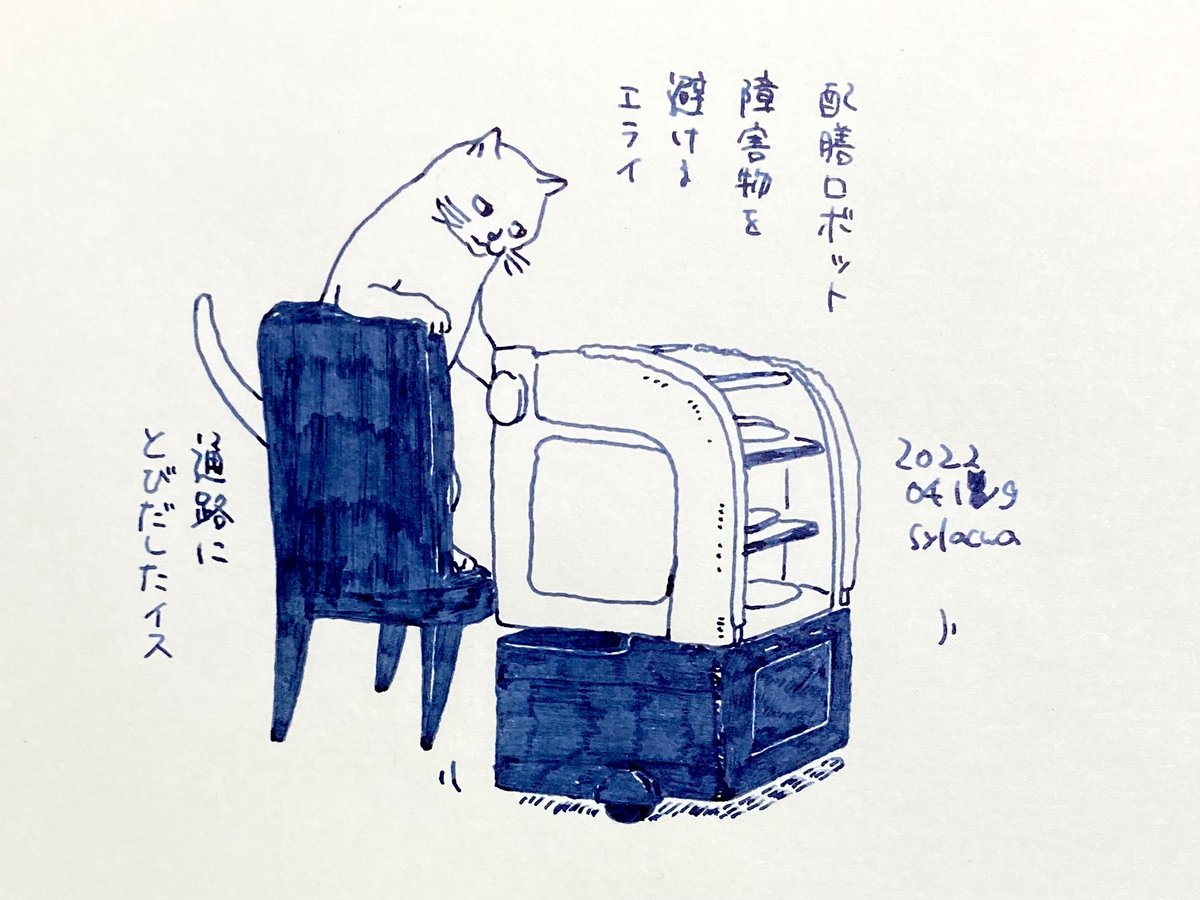 配膳ロボット
障害物を
避けま
エライ
通路に
とびだしたイス
2022
04 19
sylacwa